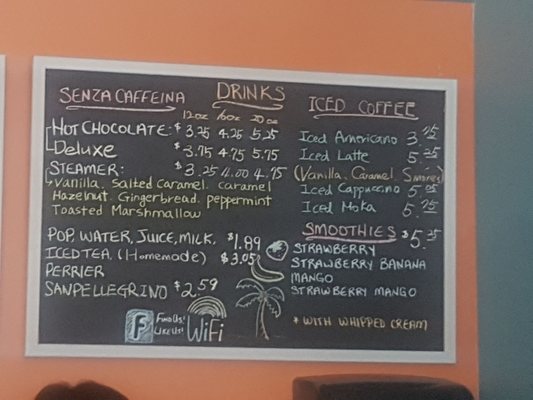 DRINKS
SENZA CAFFEINA
12oz 16oz 20oz
HOT CHOCOLATE: $3.25 4.25 5.25
Deluxe $3.75 4.75 5.75
STEAMER: $3.25 4.00 4.75
Vanilla. Salted Caramel. caramel
Hazelnut. Gingerbread. peppermint
Toasted Marshmallow
POP, WATER, JUICE, MILK. $1.89
ICED TEA. (Homemade) $3.05
PERRIER
SANPELLEGRINO $2.59
f Find Us!
Like Us!
WiFi
ICED COFFEE
Iced Americano 3.75
Iced Latte 5.25
(Vanilla. Caramel. Smores)
Iced Cappuccino 5.05
Iced Moka 5.75
SMOOTHIES $5.35
STRAWBERRY
STRAWBERRY BANANA
MANGO
STRAWBERRY MANGO
* WITH WHIPPED CREAM